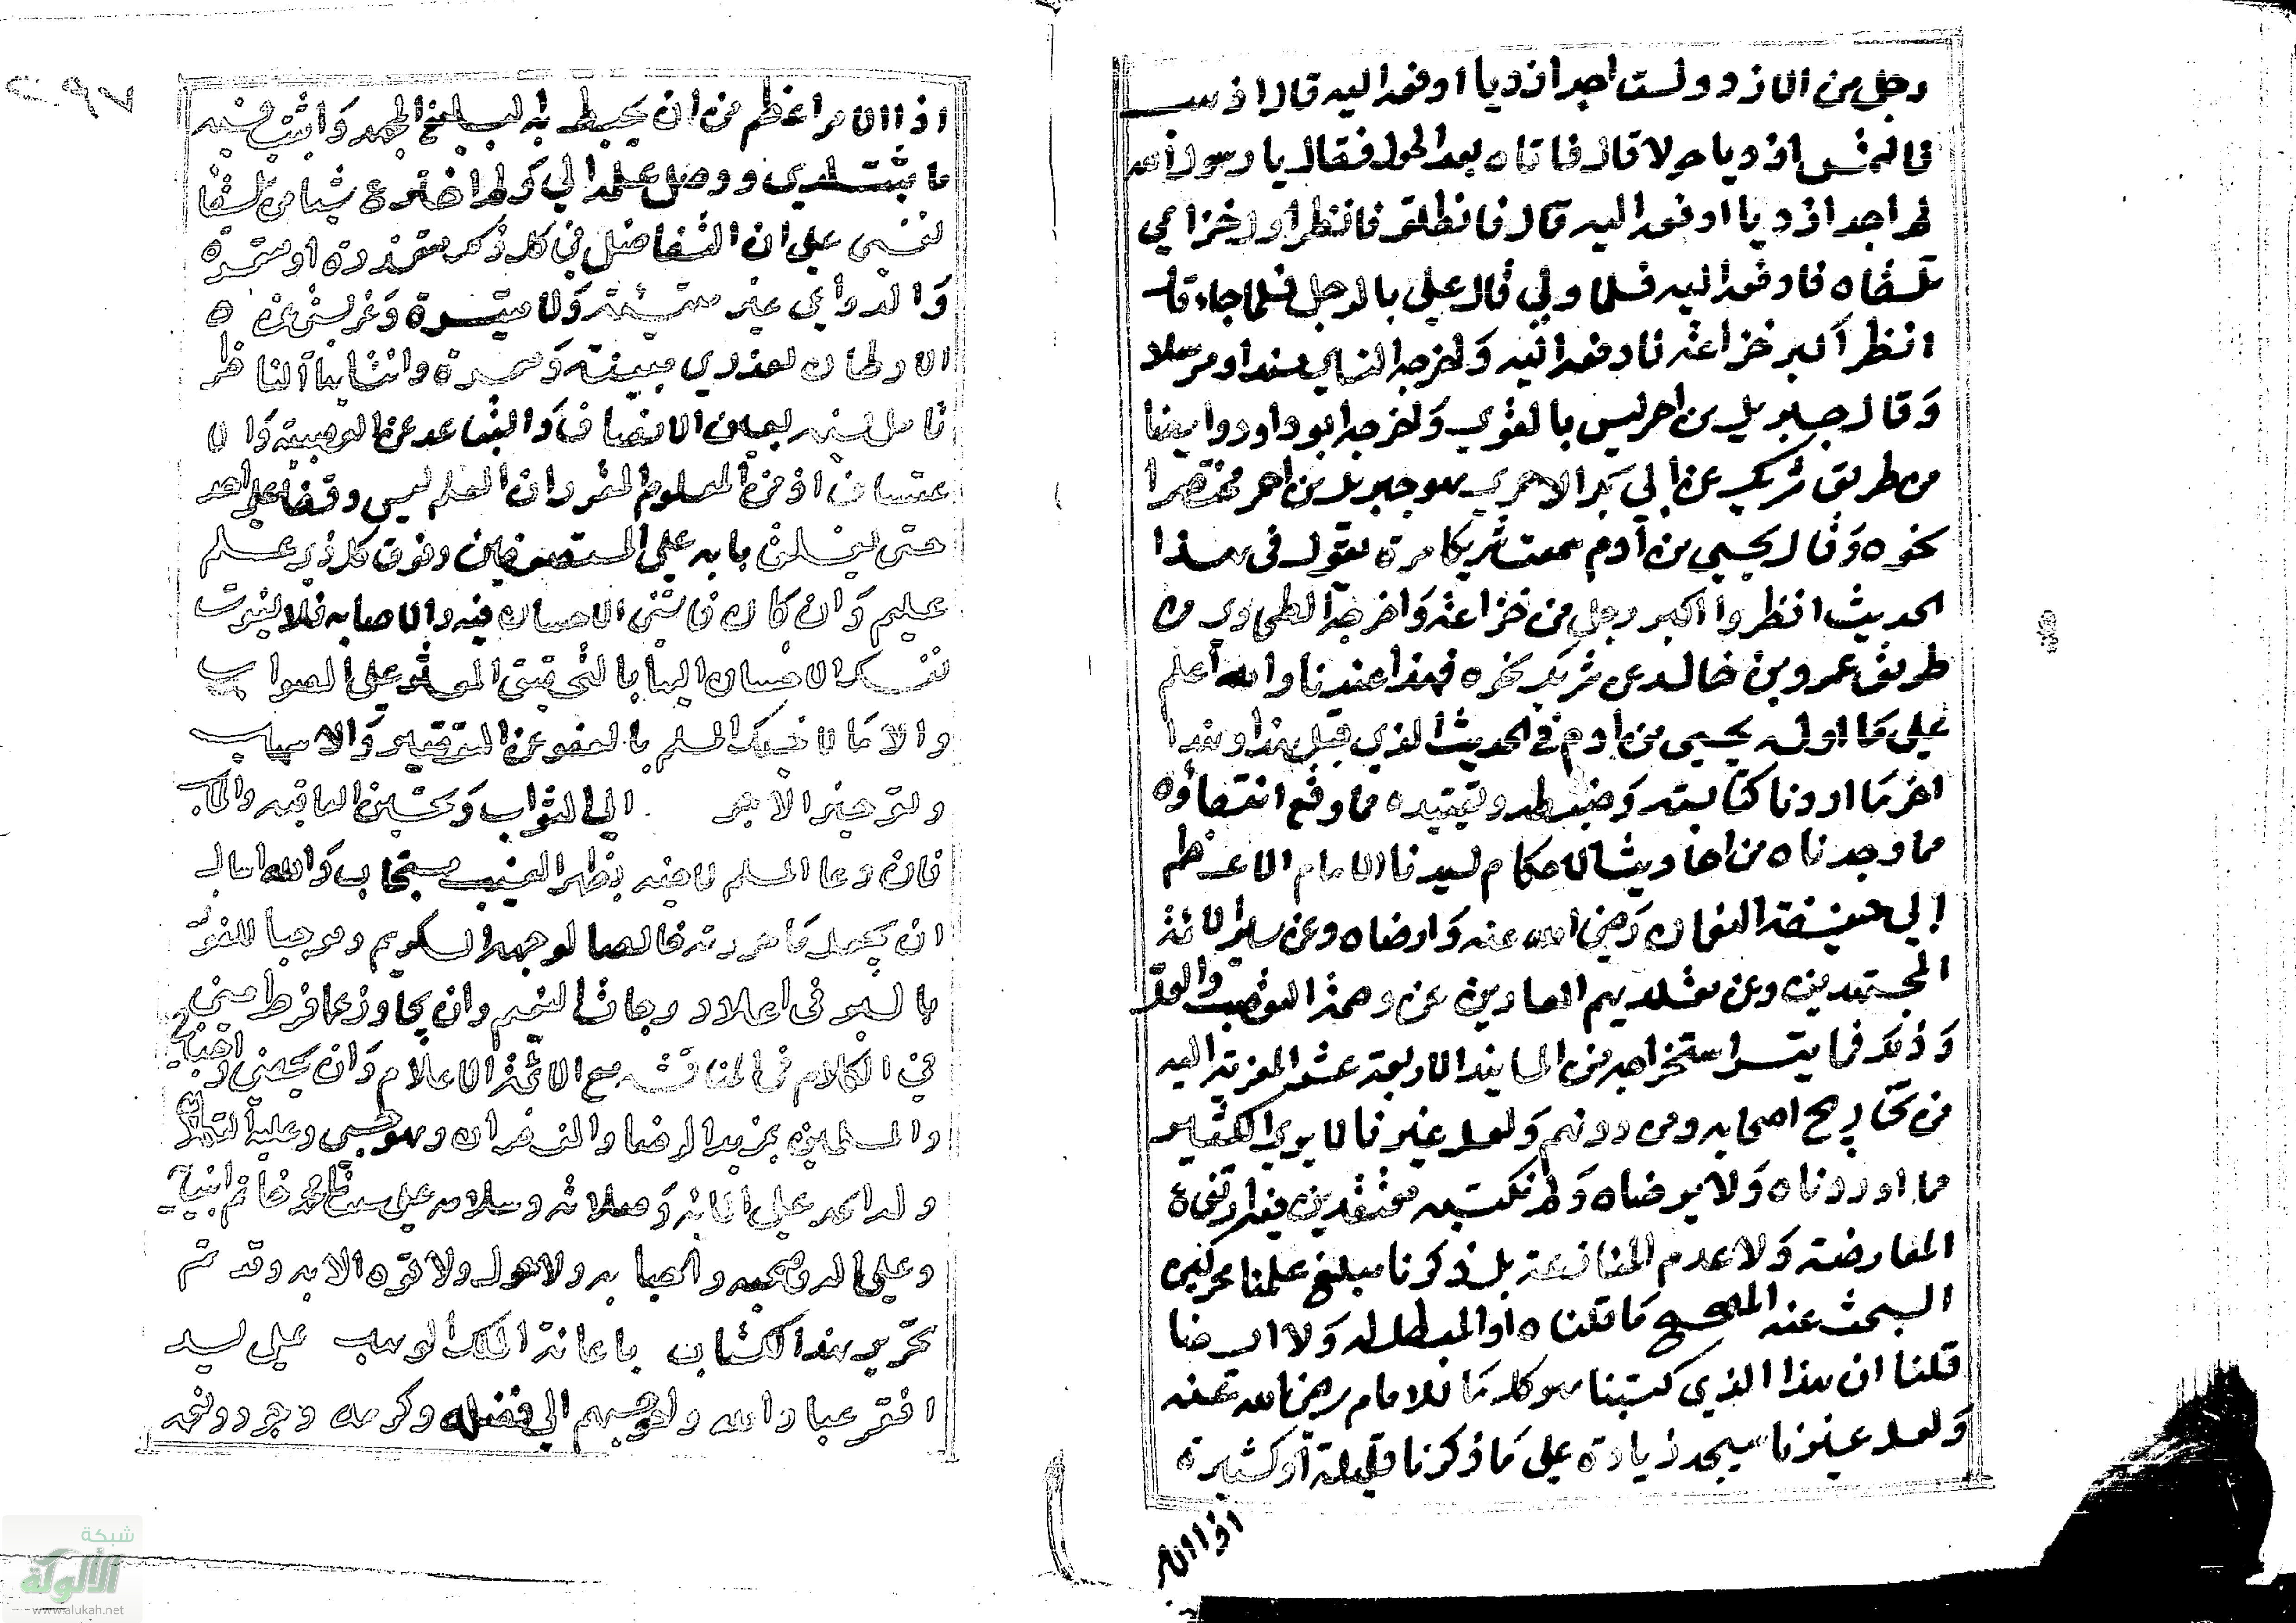 رجل من الازد ولست اجد ازديا ادفعه اليه قال اذهب
فالتمس ازديا حولا قال فاتاه بعد الحول فقال يا رسول الله
لم اجد ازديا ادفعه اليه قال فانطلق فانظر اول خزاعي
تلقاه فادفعه اليه فلما ولي قال علي بالرجل فلما جاء قال
انظر اكبر خزاعة فادفعه اليه واخرجه النسائي مسندا ومرسلا
وقال جبريل بن احمر ليس بالقوي واخرجه ابو داود وايضا
من طريق شريك عن ابي بكر الاحمري هو جبريل بن احمر مختصرا
نحوه وقال يحيى بن ادم سمعت شريكا مرة يقول في هذا
الحديث انظروا اكبر رجل من خزاعة واخرجه الطحاوي من
طريق عمرو بن خالد عن شريك نحوه فهذا عندنا والله اعلم
على ما اوله يحيى بن ادم في الحديث الذي قبل هذا وهذا
اخر ما اردنا كتابته وضبطه وتقييده مما وقع انتقاؤه
مما وجدناه من احاديث الاحكام لسيدنا الامام الاعظم
ابي حنيفة النعمان رضي الله عنه وارضاه وعن سائر الائمة
المجتهدين وعن مقلديهم العادين عن وصمة التعصب والغلا
وذلك فما يتسر استخراجه من المسانيد الاربعة عشر المعزية اليه
من تخاريج اصحابه ومن دونهم ولعل غيرنا لا يرى الكثير
مما اوردناه ولا يرضاه ولم نكتبه معتقدين فيه
المعارضة ولا عدم المنافعة بل ذكرنا مبلغ علمنا
البحث عنه المصحح ما قلناه او المبطل له ولا الرضا
قلنا ان هذا الذي كتبنا هو كل ما للامام رضي الله عنه
ولعل غيرنا سيجد زيادة على ما ذكرنا قليلة او كثيرة
اذ الامر
اذ الامر اعظم من ان يحيط به لب البليغ الجهد واثبت فيه
ما ووصل علمه الي ولم شيا من تلقا
نفسي على ان التفاضل في كل ذكر متعذرة او متعسرة
والدواعي غير ولا متيسرة
الاوطان لعذري مبينة وممهدة وانت ايها الناظر
تامل فيه بعين الانصاف والتباعد عن العصبية والا
عتساف اذ من المعلوم المقرر ان العلم ليس وقفا على احد
حتى يغلق بابه على المستضعفين وفوق كل ذي علم
عليم وان كان فاتني الاحسان فيه والاصابه فلا يفوت
الاحسان الينا بالتحقيق على الصواب
والا ما لاخيك المسلم بالعفو عن التقصير والاسهاب
وترجيز الاجر الى الثواب وتحسين العاقبه والمآب
فان دعا المسلم لاخيه بظهر الغيب مستجاب والله اسال
ان يجعل ما حررته خالصا لوجهه الكريم وموجبا للفوز
في اعلا درجات النعيم وان يجاوز عما فرط مني
في الكلام في المناقشه مع الائمة الاعلام وان يخصني واحبابي
والمسلمين بمزيد الرضا والغفران وهو حسبي وعليه التكلان
وله الحمد على وصلاته وسلامه على سيدنا محمد خاتم انبيائه
وعلى اله وصحبه واحبابه ولا حول ولا قوة الا به وقد تم
تحرير هذا الكتاب باعانة الملك الوهاب على يد
افقر عباد الله واحوجهم الى فضله وكرمه وجوده
شبكة
الألوكة
www.alukah.net